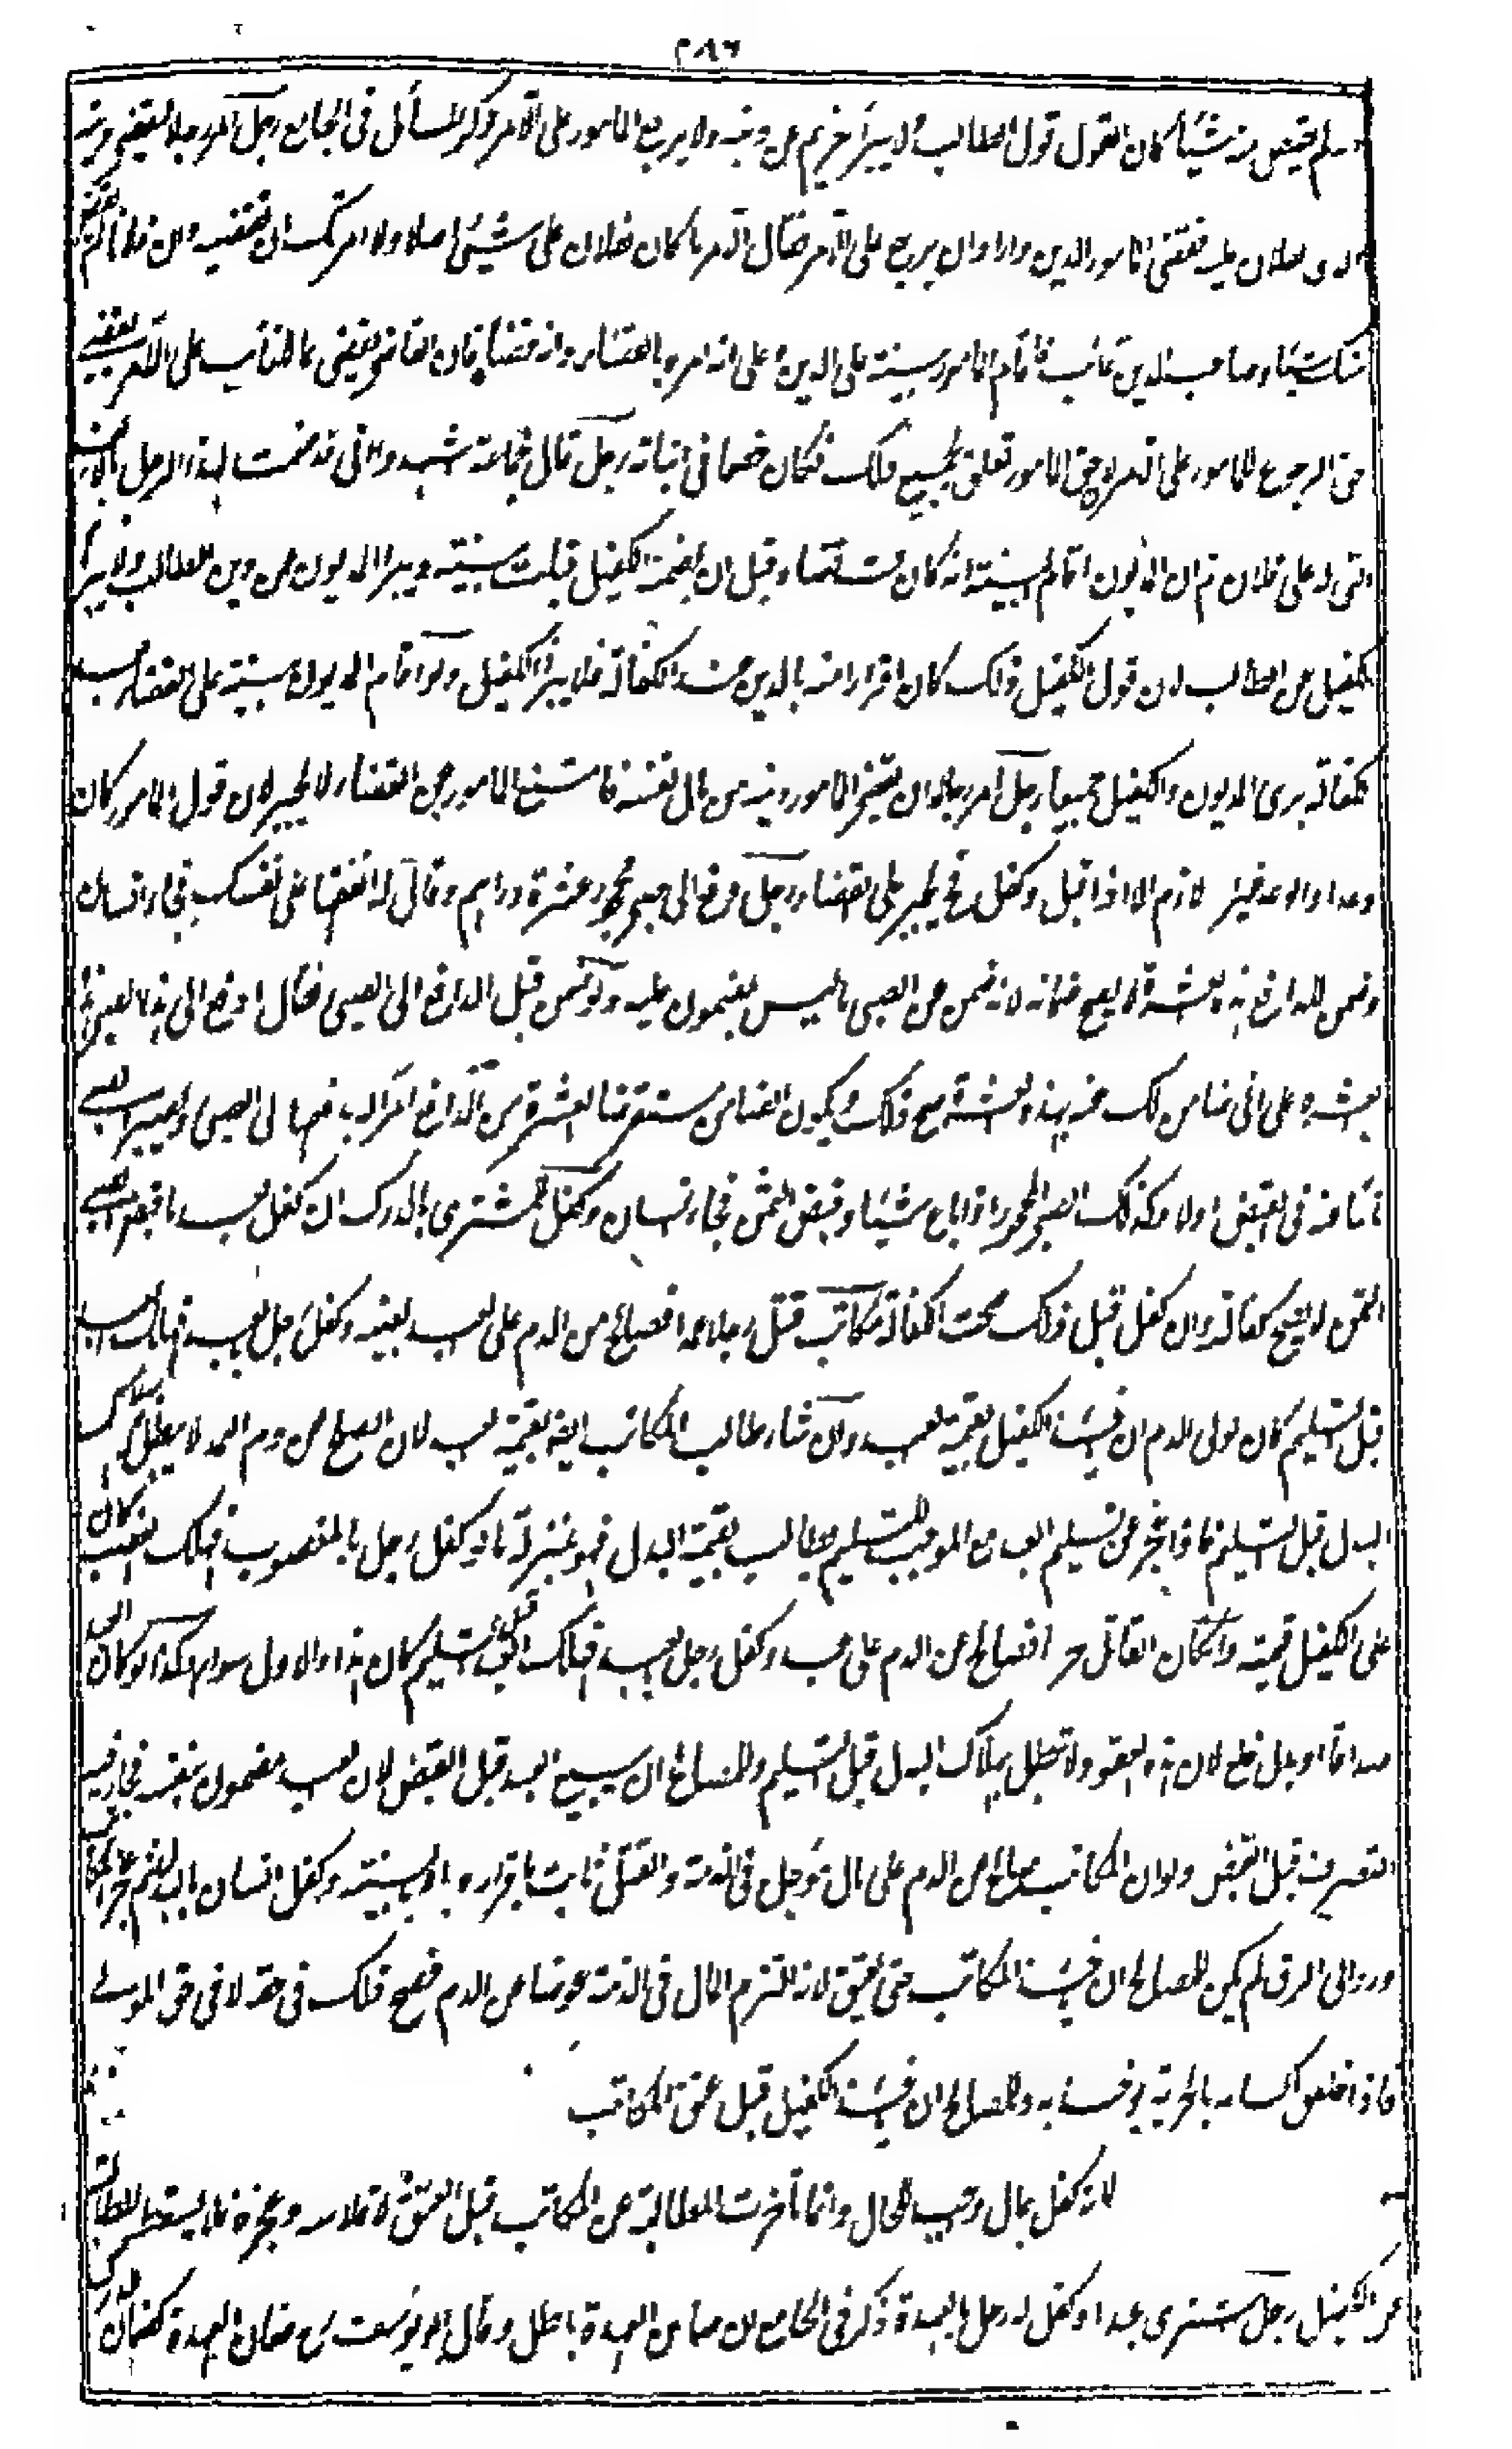 ٢٨٦
لم اقبض منه شيئا كان القول قول الطالب ولا يبرأ غريم عن دينه ولا يرجع المامور على الآمر وذكر المسائل في الجامع رجل امر رجلا ليقضي دينه
فلان عليه فقضى المامور الدين واراد ان يرجع على الآمر فقال الآمر ما كان لفلان علي شيء اصلا ولا امرتك ان تقضيه وان فلانا لم يقبض
منك شيئا وصاحب الدين غائب فاقام المامور بينة على الدين وعلى انه امره بالقضاء وانه قضاه فان القاضي يقضي بالمال للغائب على الآمر ويقضي
حق الرجوع للمامور على الآمر لان حق المامور تعلق بجميع ذلك فكان خصما في اثباته رجل قال لجماعة اشهدوا اني قد ضمنت لهذا الرجل بالالف
التي له على فلان ثم ان المديون اقام البينة انه كان قضاها قبل ان يضمنه الكفيل قبلت بينته ويبرأ المديون عن دين الطالب ولا يبرأ
الكفيل عن الطالب لان قول الكفيل ذلك كان اقرارا منه بالدين عند الكفالة فلا يبرأ الكفيل ولو اقام المديون بينة على القضاء بعد
الكفالة برئ المديون والكفيل جميعا رجل امر رجلا ان يقضي المامور دينه من مال نفسه فامتنع المامور عن القضاء لا يجبر لان قول المامور كان
وعدا والوعد غير لازم الا اذا قبل وكفل فح يجبر على القضاء رجل دفع الى صبي محجور عشرة دراهم وقال له انفقها على نفسك فجاء انسان
وضمن للدافع بهذه العشرة لا يصح ضمانه لانه ضمن عن الصبي ما ليس بمضمون عليه ولو ضمن قبل الدفع الى الصبي فقال ادفع الى هذا الصبي هذه
العشرة على اني ضامن لك عنه بهذه العشرة صح ذلك ويكون الضامن مستقرضا العشرة من الدافع آمرا له بدفعها الى الصبي ويصير الصبي
نائبا عنه في القبض اولا وكذلك الصبي المحجور اذا باع شيئا وقبض الثمن فجاء انسان وكفل للمشتري بالدرك ان كفل بعد ما قبض الصبي
الثمن لا يصح كفالته وان كفل قبل ذلك صحت الكفالة مكاتب قتل رجلا عمدا فصالح من الدم على عبد بعينه وكفل رجل بالعبد فهلك العبد
قبل التسليم كان لولي الدم ان شاء ضمن الكفيل بقيمة العبد وان شاء طالب المكاتب ايضا بقيمة العبد لان الصلح عن دم العمد لا يبطل بهلاك
البدل قبل التسليم فاذا عجز عن تسليم العبد مع الموجب للتسليم يطالب بقيمة البدل فهو بمنزلة ما لو كفل رجل بالمغصوب فهلك المغصوب كان
على الكفيل قيمته وان كان القاتل حرا فصالح عن الدم على عبد وكفل رجل بالعبد فهلك العبد قبل التسليم كان هذا والاول سواء وكذا لو كان العبد
صداقا او بدل خلع لان هذه العقود لا تبطل بهلاك البدل قبل التسليم وللمصالح ان يبيع العبد قبل القبض لان العبد مضمون بنفسه فجاز فيه
التصرف قبل القبض ولو ان المكاتب صالح من الدم على مال مؤجل في الذمة والقتل ثابت باقراره او ببينة وكفل انسان بالبدل ثم عجز المكاتب
ورد الى الرق لم يكن للمصالح ان يؤاخذ المكاتب حتى يعتق لانه التزم المال في الذمة عوضا من الدم فصح ذلك في حقه لا في حق المولى
فاذا خلص اكسابه بالحرية يؤخذ به وللمصالح ان ياخذ الكفيل قبل عتق المكاتب
لانه كفل بمال واجب للحال وانما تاخرت المطالبة عن المكاتب قبل العتق لافلاسه وعجزه فلا يسقط المطالبة
عن الكفيل رجل اشترى عبدا وكفل له رجل بالعهدة ذكر في الجامع ان ضمان العهدة باطل وقال ابو يوسف ره ضمان العهدة كضمان الدرك